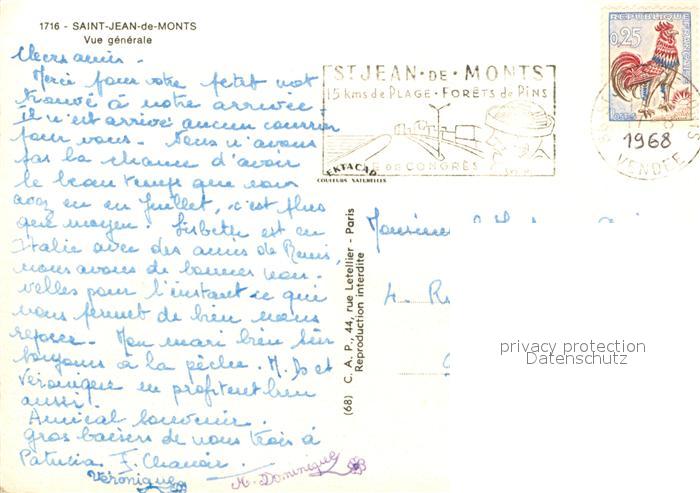 1716 - SAINT-JEAN-de-MONTS
Vue générale
Chers amis.
Merci pour votre petit mot
trouvé à notre arrivée
il n'est arrivé aucun courrier
pour vous. Nous n'avons
pas la chance d'avoir
le beau temps que vous
avez eu en Juillet, c'est plus
que moyen. Lisbeth est en
Italie avec des amis de
nous avons de bonnes nou-
velles pour l'instant ce qui
nous permet de bien nous
reposer. Mon mari bien sûr
toujours à la pêche. M. Do et
Véronique en profitent bien
aussi.
Amical souvenir.
gros baisers de nous trois à
Patricia
Véronique
M. Dominique
ST JEAN · DE · MONTS
15 kms de PLAGE · FORÊTS de PINS
DE CONGRÈS
EKTACAP
COULEURS NATURELLES
REPUBLIQUE FRANÇAISE
0,25
POSTES
1968
VENDÉE
(68) C. A. P., 44, rue Letellier - Paris
Reproduction interdite
Monsieur
4. R
privacy protection
Datenschutz